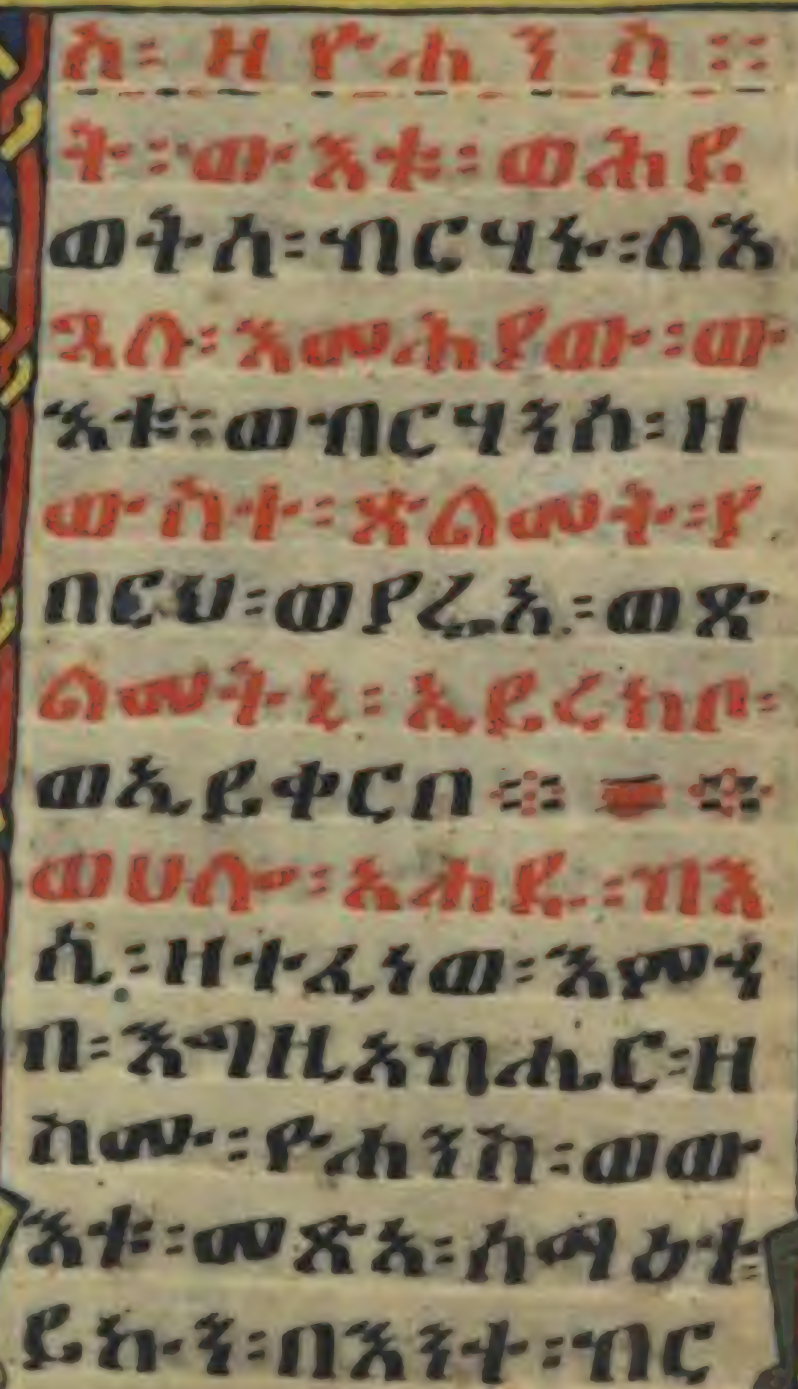 ስ፡ ዘዮሐንስ ፡፡
ት፡ውእቱ፡ወሕይ
ወትሰ፡ብርሃኑ፡ለእ
ጓሉ፡እመሕያው፡ው
እቱ፡ወብርሃንሰ፡ዘ
ውስተ፡ጽልመት፡ያ
በርህ፡ወያሬኢ፡ወጽ
ልመትኒ፡ኢይረክቦ፡
ወኢይቀርቦ ፨ ፨
ወሀሎ፡አሐዱ፡ብእ
ሲ፡ዘተፈነወ፡እምኀ
በ፡እግዚአብሔር፡ዘ
ስሙ፡ዮሐንስ፡ወው
እቱ፡መጽአ፡ሰማዕተ
ይኩን፡በእንተ፡ብር